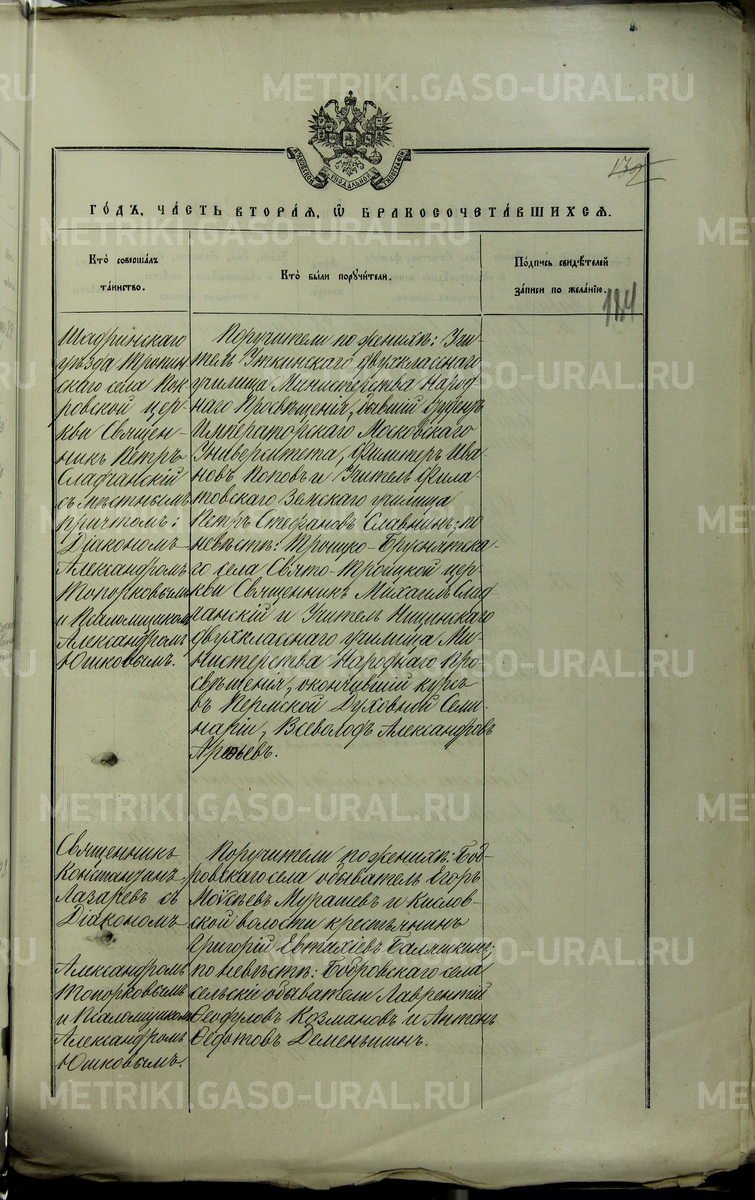 METRIKI.GASO-URAL.RU
132
МОСКОВСКОЙ СѴНОДАЛЬНОЙ ТИПОГРАФІИ
ГО́ДЪ, ЧА́СТЬ ВТОРА́Я, Ѡ БРАКОСОЧЕТА́ВШИХСЯ.
Кто̀ соверша́лъ
та́инство.
Кто̀ бы́ли поручи́тели.
По́дпись свидѣ́телей
за́писи по жела́нію.
184
Шадринскаго
уѣзда Тропин
скаго села Пок
ровской цер-
кви Священ-
никъ Петръ
Сладчанскій
съ мѣстнымъ
причтомъ:
Діакономъ
Александромъ
Топорковымъ
и Псаломщикомъ
Александромъ
Юшковымъ.
Поручители по женихѣ: Учи-
тель Уткинскаго двухкласснаго
училища Министерства Народ
наго Просвѣщенія, бывшій студентъ
Императорскаго Московскаго
Университета, Димитръ Ива
новъ Поповъ и Учитель Фила-
товскаго Земскаго училища
Петръ Стефановъ Славнинъ; по
невѣстѣ: Троицко-Бруснятска-
го села Свято-Троицкой цер-
кви Священникъ Михаилъ Слад
чанскій и Учитель Ницинскаго
двухкласснаго училища Ми-
нистерства Народнаго Про-
свѣщенія, окончившій курсъ
въ Пермской Духовной Семи-
наріи, Всеволодъ Александровъ
Арефьевъ.
Священникъ
Константинъ
Лазаревъ съ
Діакономъ
Александромъ
Топорковымъ
и Псаломщикомъ
Александромъ
Юшковымъ.
Поручители по женихѣ: Боб-
ровскаго села обыватель Егоръ
Моѵсѣевъ Мурашевъ и Кислов-
ской волости крестьянинъ
Григорій Евтихіевъ Баляшкинъ;
по невѣстѣ: Бобровскаго села
сельскіе обыватели Лаврентій
Ѳеофуловъ Козмановъ и Антонъ
Ѳедотовъ Деменьшинъ.